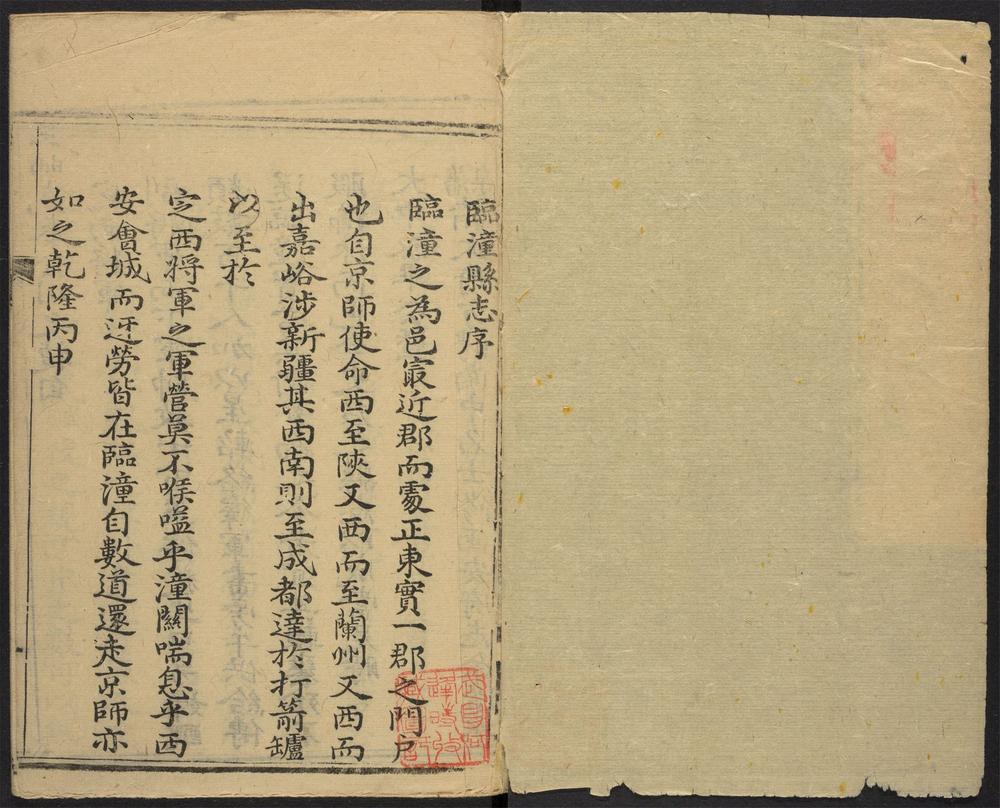 臨潼縣志序
臨潼之為邑㝡近郡而處正東實一郡之門户
也自京師使命西至陝又西而至蘭州又西而
出嘉峪涉新疆其西南則至成都達於打箭罏
以至於
定西将軍之軍營莫不喉嗌乎潼關喘息乎西
安會城而迓勞皆在臨潼自數道還走京師亦
如之乾隆丙申